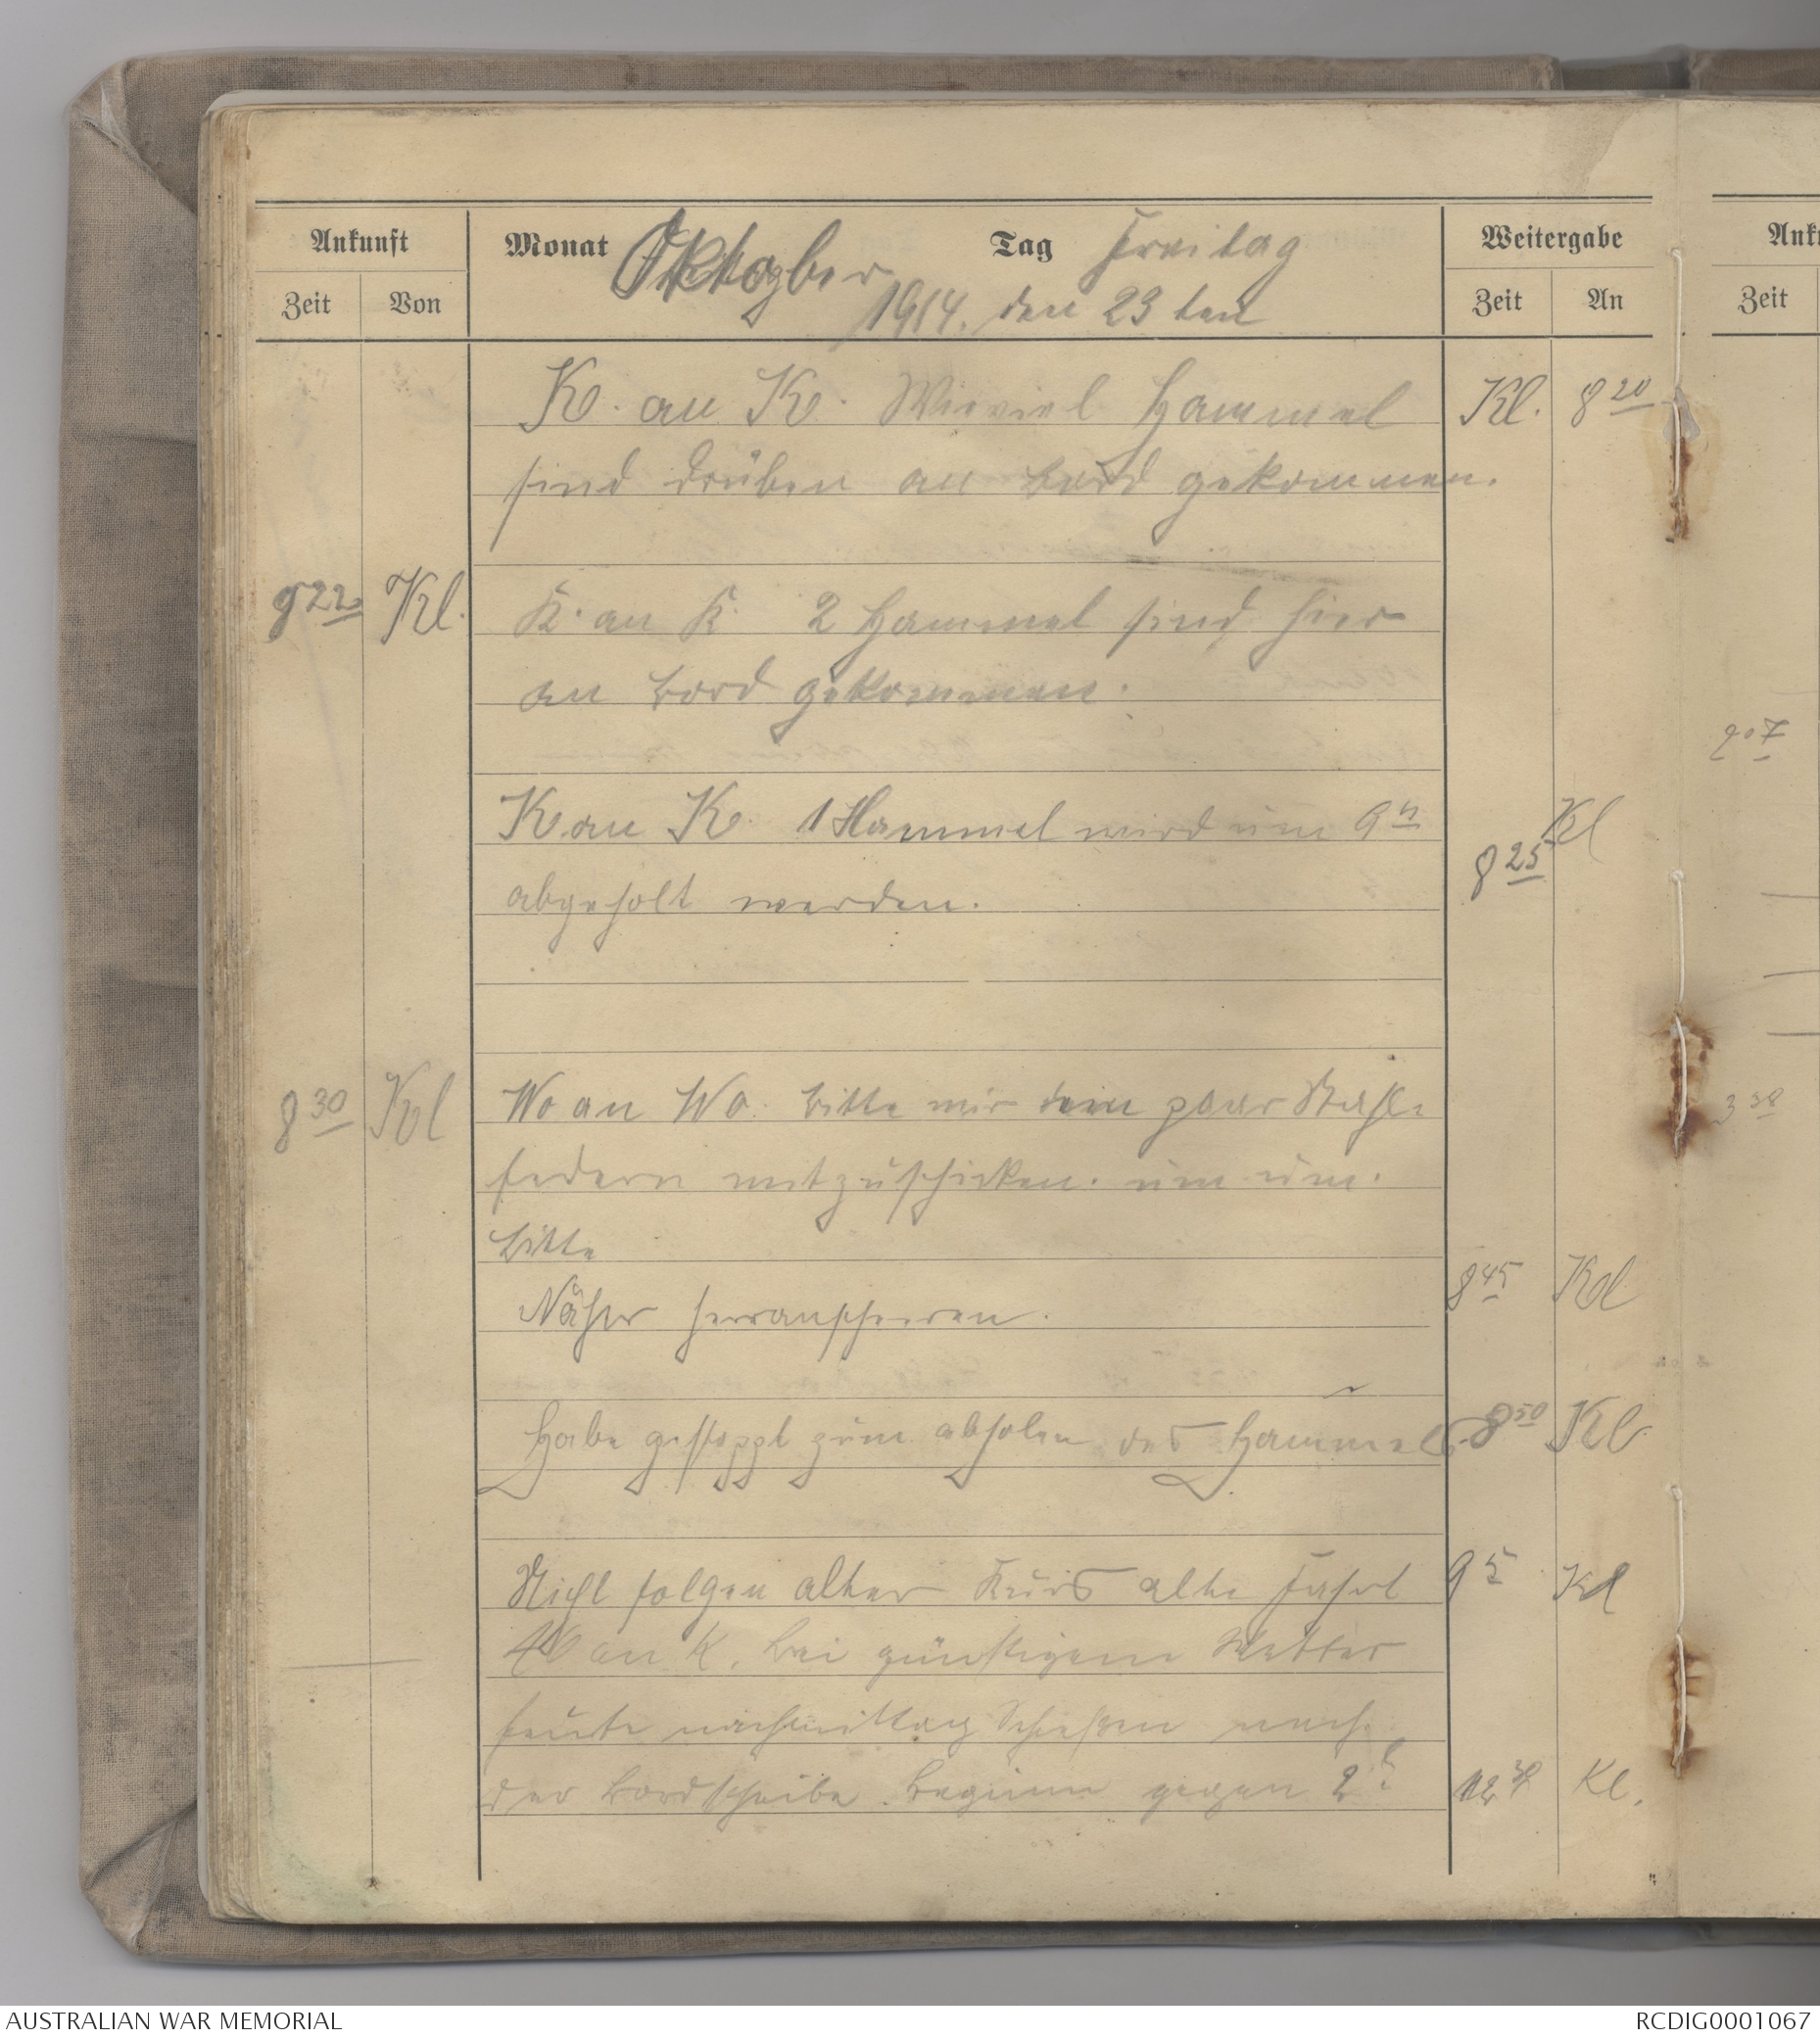 Ankunft Monat Oktober Tag Freitag Weitergabe
Zeit Von 1914. den 23ten Zeit An
K. an K. Wieviel Hammel Kl. 8 20
sind drüben an Bord gekommen.
8 22 Kl. K. an K. 2 Hammel sind hier
an Bord gekommen.
K an K. 1 Hammel wird um 9 h Kl
abgeholt werden. 8 25
8 30 Kl Wo an Wo. Bitte mir ein paar Stahl-
federn mitzuschicken. um um.
Bitte
Näher heranscheeren. 8 45 Kl
Habe gestoppt zum abholen des Hammels. 8 50 Kl
Nicht folgen alter Kurs alte Fahrt 9 5 Kl
K an K. Bei günstigem Wetter
heute nachmittag Schießen nach
der Bordscheibe. Beginn gegen 2 h Kl.
Anku
Zeit
2 07
3 38
AUSTRALIAN WAR MEMORIAL RCDIG0001067